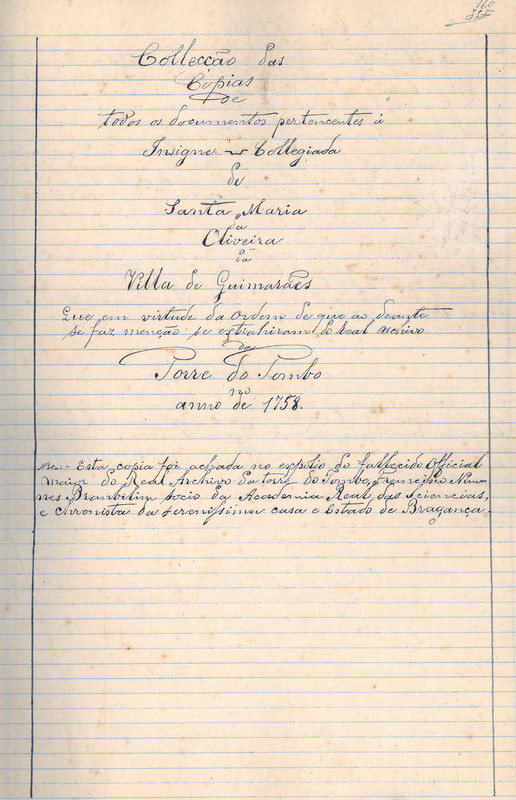 160
Collecção das
Copias
De
todos os documentos pertencentes á
Insigne Collegiada
de
Santa Maria
da
Oliveira
da
Villa de Guimarães
Que em virtude da Ordem de que ao deante
se faz menção se extrahiram do Real Archivo
da
Torre do Tombo
no
anno de 1758.
Nota:- Esta copia foi achada no espolio do fallecido Official
Maior do Real Archivo da torre do Tombo, Francisco Nu-
nes socio da Academia Real das Sciencias,
e chronista da Serenissima casa e Estado de Bragança.